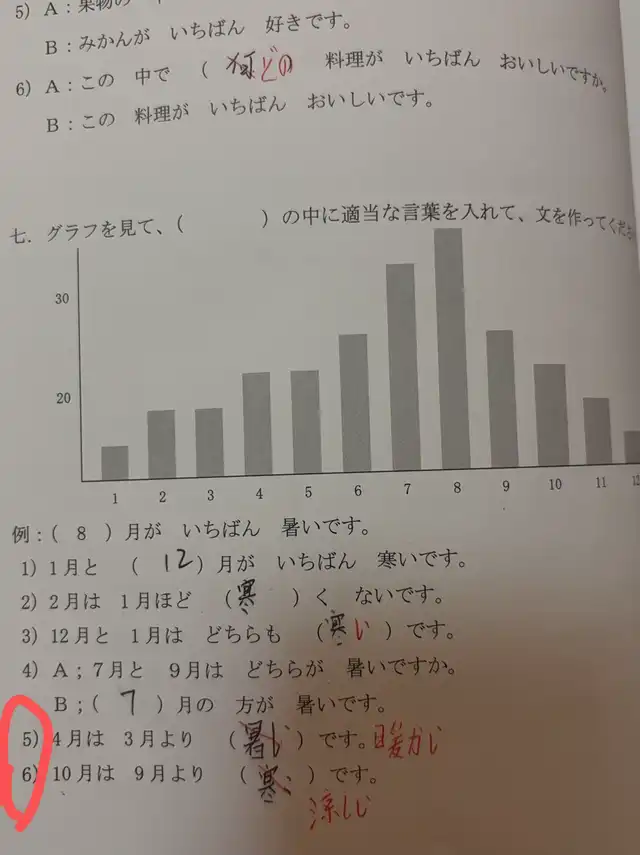 5) A：果物の
B：みかんが いちばん 好きです。
6) A：この 中で ( どの 料理が いちばん おいしいですか。
B：この 料理が いちばん おいしいです。
七. グラフを見て、( )の中に適当な言葉を入れて、文を作ってくださ
30
20
1 2 3 4 5 6 7 8 9 10 11 12
例：( 8 )月が いちばん 暑いです。
1) 1月と ( 12 )月が いちばん 寒いです。
2) 2月は 1月ほど (寒 )く ないです。
3) 12月と 1月は どちらも (寒い)です。
4) A；7月と 9月は どちらが 暑いですか。
B；( 7 )月の 方が 暑いです。
5) 4月は 3月より (暑い)です。暖かい
6) 10月は 9月より (寒い)です。
涼しい